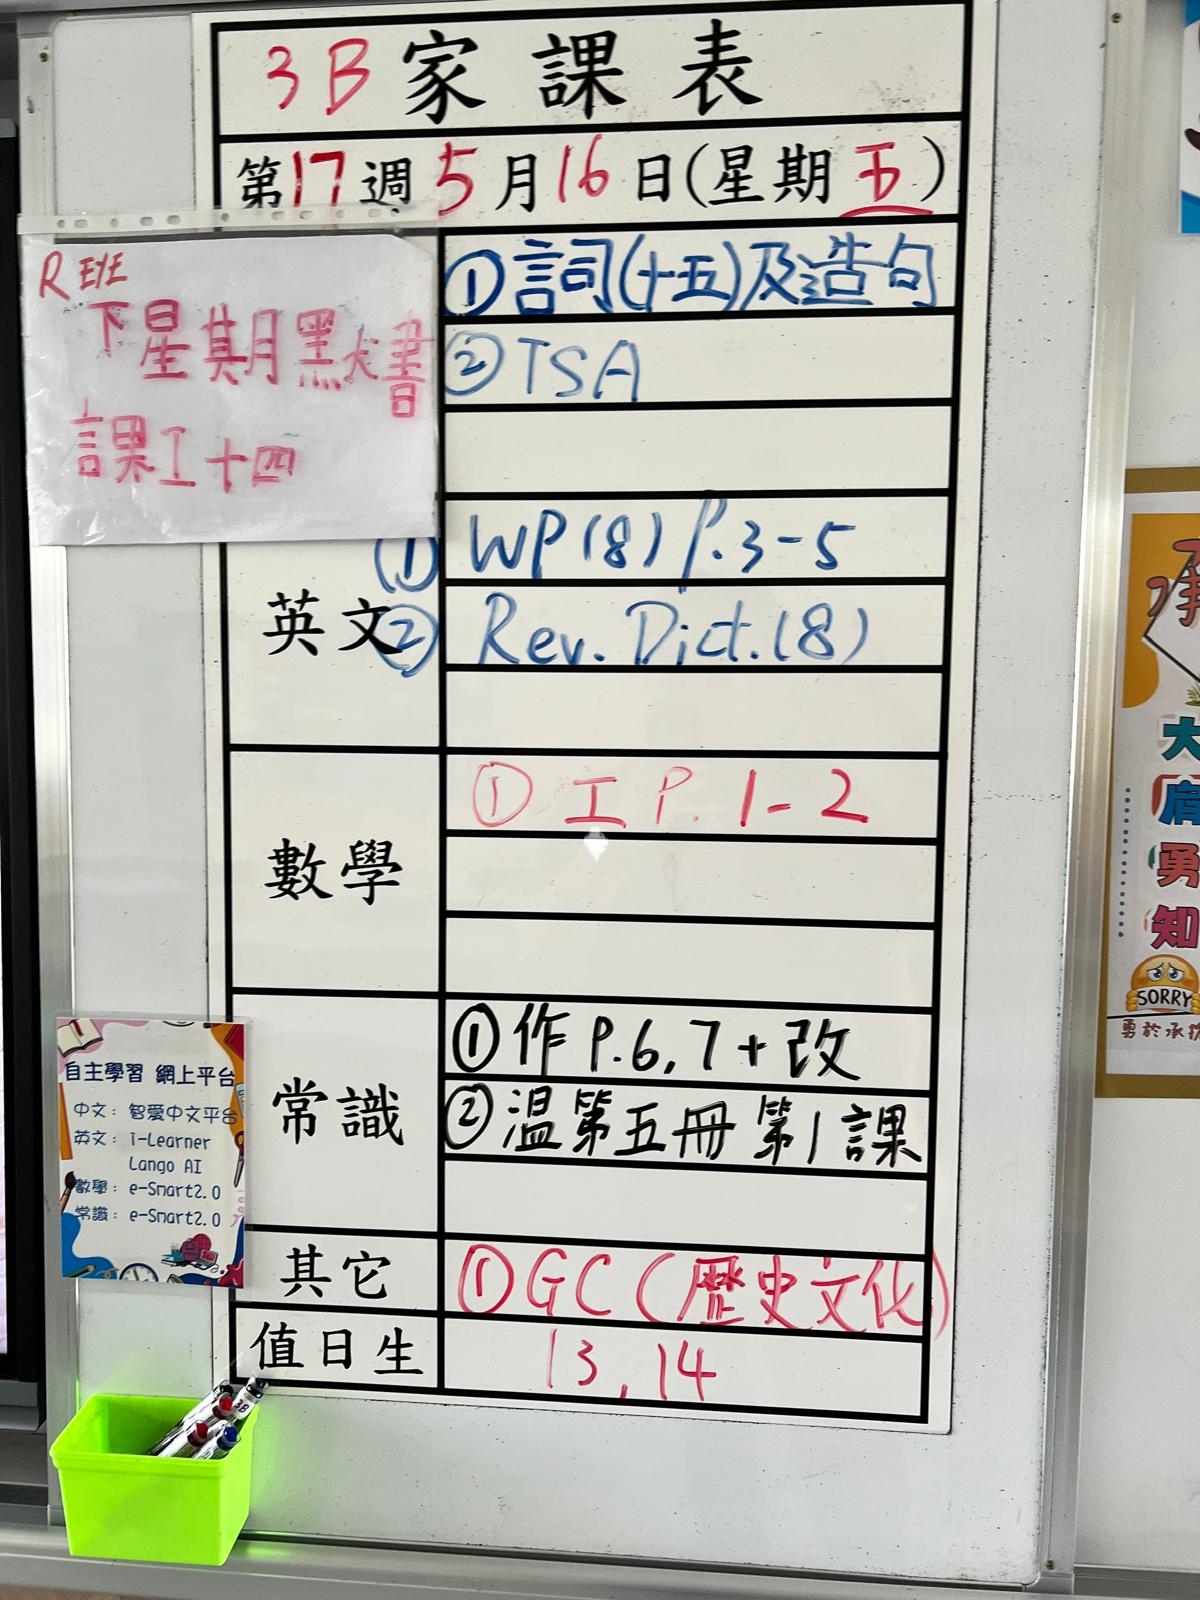 3B家課表
第17週5月16日(星期五)
R EYE
下星期默書
課工十四
①詞(十五)及造句
②TSA
英文
① WP(8) P.3-5
② Rev. Dict.(8)
數學
① 工 P. 1-2
常識
①作 P.6,7+改
②溫第五冊第1課
其它
①GC(歷史文化)
值日生
13,14
自主學習 網上平台
中文: 智愛中文平台
英文: i-Learner
Lango AI
數學: e-Smart2.0
常識: e-Smart2.0
3B
大
肩
勇
知
SORRY
勇於承